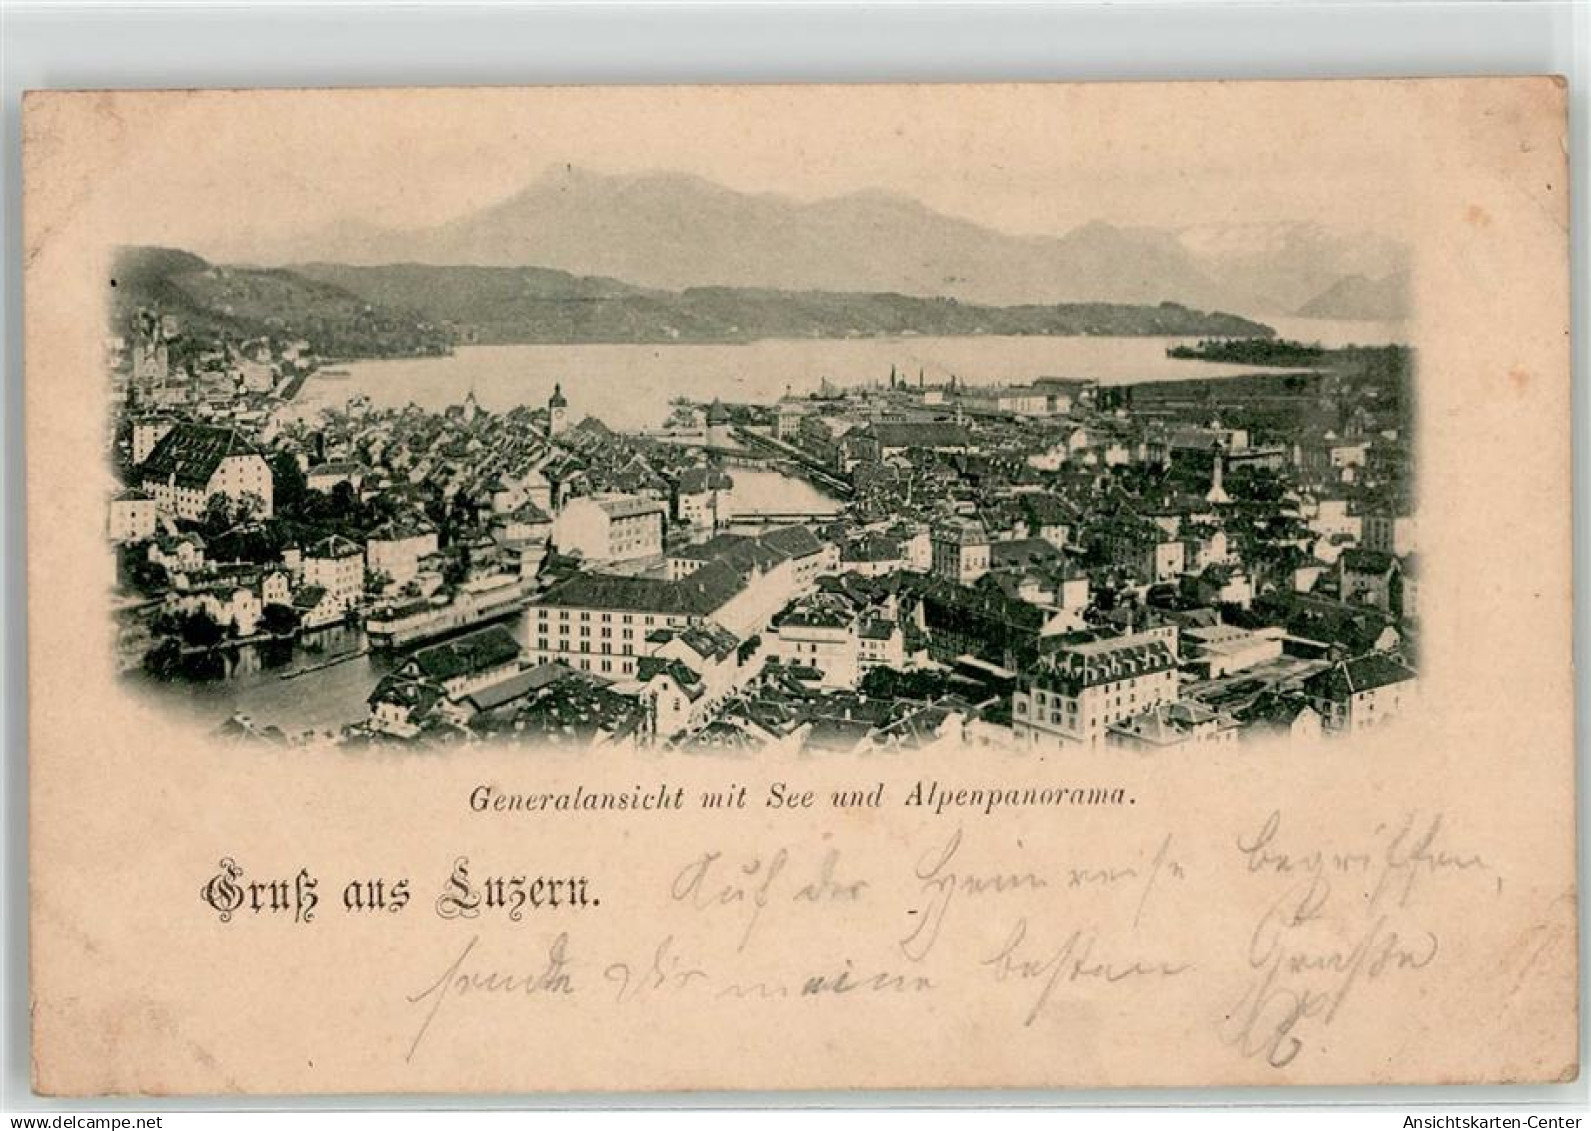 Generalansicht mit See und Alpenpanorama.
Gruß aus Luzern.
Auf der Heimreise begriffen,
sende Dir meine besten Grüße
www.delcampe.net
Ansichtskarten-Center